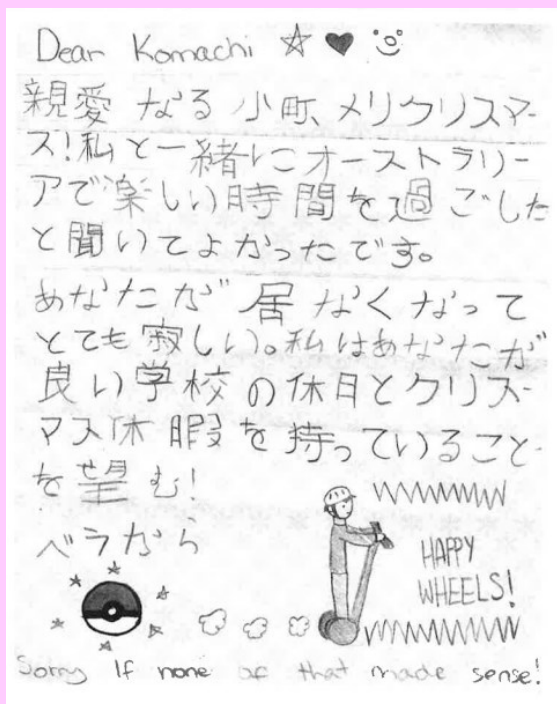 Dear Komachi
親愛なる小町、メリクリスマー
ス!私と一緒にオーストラリー
アで楽しい時間を過ごした
と聞いてよかったです。
あなたが居なくなって
とても寂しい。私はあなたが
良い学校の休日とクリス-
マス休暇を持っていること-
を望む!
ベラから
HAPPY
WHEELS!
Sorry If none of that made sense!